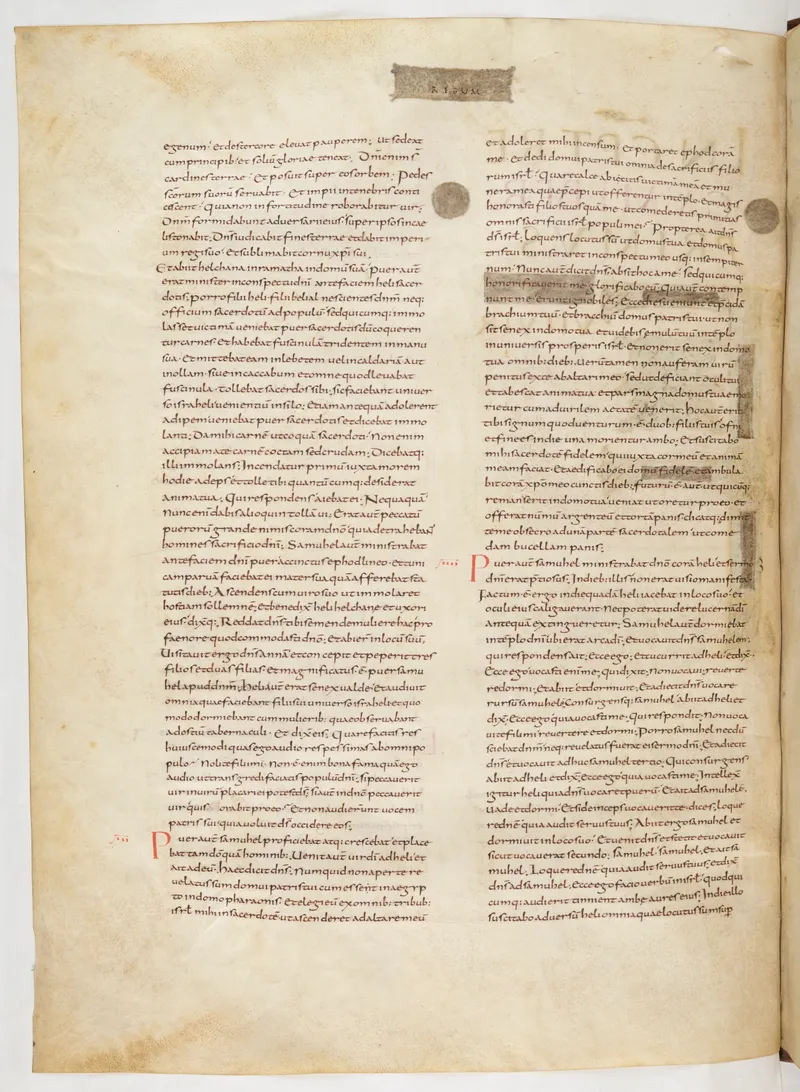 REGUM
egenum· Et destercore eleuat pauperem; Ut sedeat
cum principib· et soliũ gloriae teneat; Dñi enim s̃
cardines terrae· Et posuit super eos orbem; Pedes
scorum suorũ seruabit· Et impii in tenebris conti
cescent· Quia non in fortitudine roborabitur uir;
Dñm formidabunt aduersarii eius· super ipsos in cae
lis tonabit; Dñs iudicabit fines terrae et dabit imperi
um regi suo· Et sublimabit cornu xp̃i sui,
Et abiit helchana in ramatha in domũ suã· puer aut̃
erat minister in conspectu dñi ante faciem heli sacer
dotis; porro filii heli filii belial nescientes dñm neq:
officium sacerdotũ ad populũ· sed quicumq: immo
lasset uictimã ueniebat puer sacerdotis dũ coqueren
tur carnes· Et habebat fuscinulã tridentem in manu
sua· Et mittebat eam in lebetem uel in caldariã aut
in ollam· siue in caccabum et omne quod leuabat
fuscinula· tollebat sacerdos sibi; sic faciebant uniuer
so israheli uenientiũ in silo; Etiam antequã adolerent
adipem ueniebat puer sacerdotis et dicebat immo
lanti; Da mihi carnẽ ut coquã sacerdoti· Non enim
accipiam a te carnẽ coctam sed crudam; Dicebatq:
illi immolans; Incendatur primũ iuxta morem
hodie adeps et tolle tibi quantũcumq: desiderat
anima tua; Qui respondens aiebat ei· Nequaquã
Nunc enĩ dabis alioquin tollã ui; Erat aut̃ peccatũ
puerorũ grande nimis coram dnõ quia detrahebant
homines sacrificio dñi; Samuhel aut̃ ministrabat
ante faciem dñi puer accinctus ephod lineo· et tuni
cam paruã faciebat ei mater sua quã afferebat sta
tutis dieb; Ascendens cum uiro suo ut immolaret
hostiam sollemnẽ; et benedixit heli helchane et uxori
eius· dixq; Reddat dñs tibi semen de muliere hac pro
faenore quod commodasti dnõ; et abiert̃ in locũ suũ;
Uisitauit ergo dñs annã et concepit et peperit tres
filios et duas filias· et magnificatus ẽ puer samu
hel apud dnm̃; Heli aut̃ erat senex ualde· Et audiuit
omnia quae faciebant filii sui uniuerso israheli et quo
modo dormiebant cum mulierib: quae obseruabant
ad ostiũ tabernaculi· Et dix̃ eis; Quare facitis res
huiuscemodi quas ego audio res pessimas ab omni po
pulo· Nolite filii mi· Non ẽ enim bona fama quã ego
audio ut transgredi faciatis populũ dñi; si peccauerit
uir in uirũ placari ei potest dš; si aut̃ in dnõ peccauerit
uir quis orabit pro eo· Et non audierunt uocem
patris sui· quia uoluit dš occidere eos,
Puer aut̃ samuhel proficiebat atq: crescebat· et place
bat tam dõ quã hominib; Uenit aut̃ uir dĩ ad heli et
ait ad eũ· haec dicit dñs; Numquid non aperte re
uelatus sum domui patris tui cum essent in aegyp
to in domo pharaonis· Et elegi eũ ex omnib: tribub:
isrl mihi in sacerdotẽ ut ascenderet ad altare meũ
et adoleret mihi incensum· et portaret ephod corã
me· et dedi domui patris tui omnia de sacrificiis filio
rum isrl· Quare calce abiecistis uictimã meã et mu
nera mea quae p̃cepi ut offerrentur in tẽplo· Et magis
honorasti filios tuos quã me· ut comederetis primitias
omnis sacrificii isrl populi mei· Propterea ait dñs
dš isrl; Loquens locutus sũ ut domus tua et domus pa
tris tui ministraret in conspectu meo usq: in sempiter
num· Nunc aut̃ dicit dñs absit hoc a me· sed quicumq:
honorificauerit me glorificabo eũ; Qui aut̃ contemp
nunt me erunt ignobiles; Ecce dies ueniunt et p̃cidã
brachium tuũ· et brachiũ domus patris tui ut non
sit senex in domo tua· et uidebis emulũ tuũ in tẽplo
in uniuersis prosperis isrl· Et non erit senex in domo
tua omnib: dieb: Uerũtamen non auferam uirũ
penitus ex te ab altari meo· sed ut deficiant oculi tui
et tabescat anima tua· et pars magna domus tuae mo
rietur cum ad uirilem aetatẽ uenerit; Hoc aut̃ erit
tibi signum quod uenturum ẽ· duob: filiis tuis ofni
et finees in die una morientur ambo; Et suscitabo
mihi sacerdotẽ fidelem qui iuxta cor meũ et animã
meam faciat· Et aedificabo ei domũ fidelẽ et ambula
bit corã xp̃o meo cunctis dieb; futurũ ẽ aut̃ ut quicũq:
remanserit in domo tua ueniat ut oretur pro eo· et
offerat nũmũ argenteũ et tortã panis· dicatq; dimit
te me obsecro ad unã partẽ sacerdotalem ut come
dam bucellam panis;
Puer aut̃ samuhel ministrabat dnõ corã heli et sermo
dñi erat p̃tiosus; In dieb: illis non erat uisio manifesta
Factum ẽ ergo in die quadã heli iacebat in loco suo· et
oculi eius caligauerant· Nec poterat uidere lucernã dĩ
antequã extingueretur; Samuhel aut̃ dormiebat
in tẽplo dñi ubi erat arca dĩ; Et uocauit dñs samuhel;
qui respondens ait; Ecce ego; Et cucurrit ad heli et dix̃;
Ecce ego uocasti enĩ me; qui dixit; Non uocaui; reuerte
re dormi; Et abiit et dormiuit, Et adiecit dñs uocare
rursũ samuhel; Consurgensq: samuhel abiit ad heli et
dix̃; Ecce ego quia uocasti me; Qui respondit; Non uoca
ui te fili mi reuertere et dormi; Porro samuhel necdũ
sciebat dnm̃ neq: reuelatus fuerat ei sermo dñi; Et adiecit
dñs et uocauit adhuc samuhel tertio; Qui consurgens
abiit ad heli et dix̃; Ecce ego quia uocasti me; Intellex̃
igitur heli quia dñs uocaret puerũ; Et ait ad samuhelẽ;
Uade et dormi; Et si deinceps uocauerit te· dices; Loque
re dnẽ quia audit seruus tuus; Abiit ergo samuhel et
dormiuit in loco suo· Et uenit dñs et stetit et uocauit
sicut uocauerat secundo; samuhel· samuhel, Et ait sa
muhel; Loquere dnẽ· quia audit seruus tuus; Et dix̃
dñs ad samuhel; Ecce ego facio uerbũ in isrl· quod qui
cumq: audierit tinnient ambae aures eius; In die illo
suscitabo aduersũ heli omnia quae locutus sum sup̃